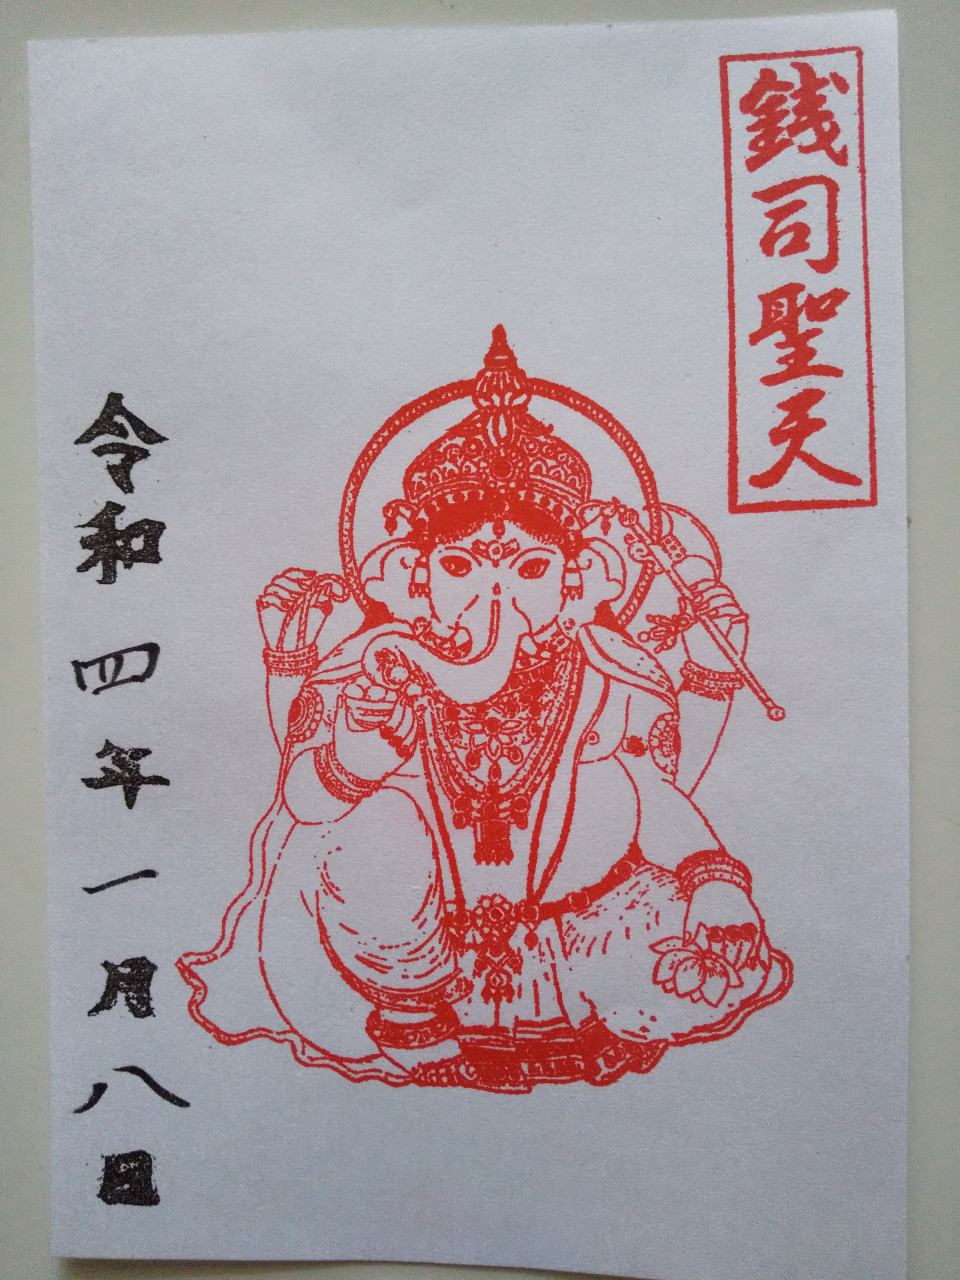 銭司聖天
令和四年一月八日